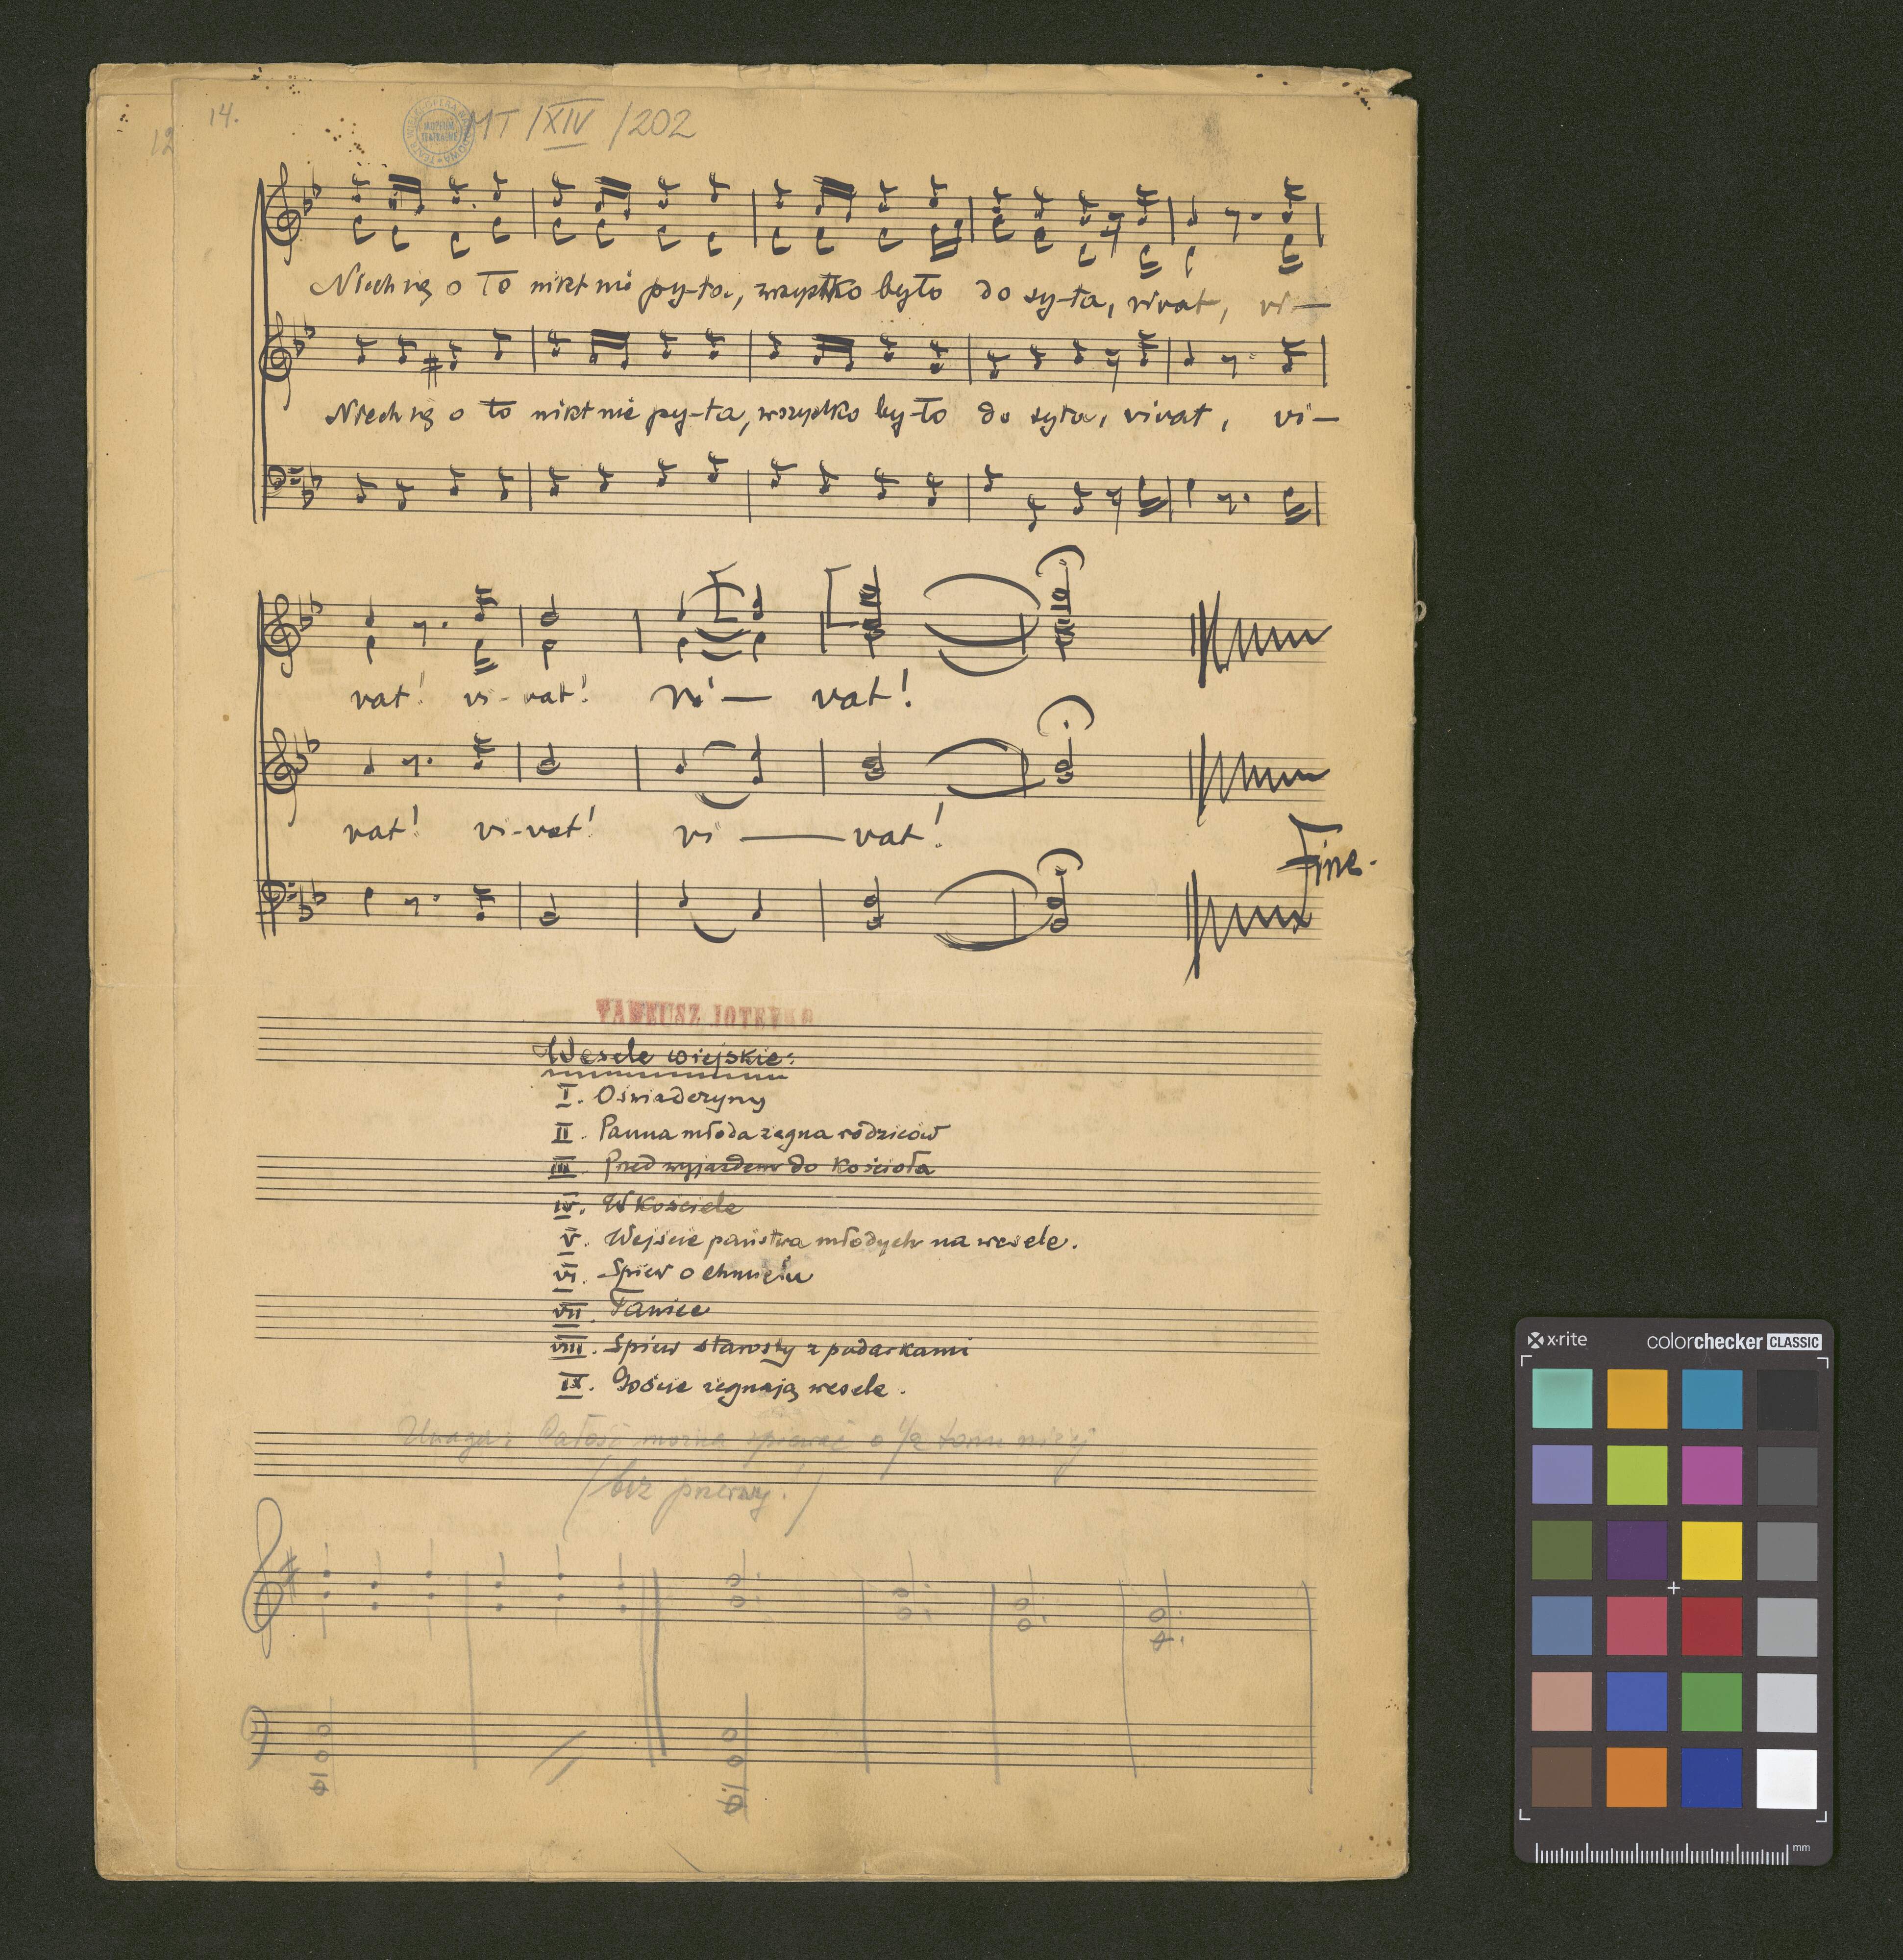 14.
12
MT/XIV/202
Niech się o to nikt nie py-ta, wszystko było do sy-ta, vivat, vi-
Niech się o to nikt nie py-ta, wszystko by-ło do syta, vivat, vi-
vat! vi-vat! vi- vat!
vat! vi-vat! vi- vat!
Fine.
TADEUSZ JOTEYKO
Wesele wiejskie:
I. Oświadczyny
II. Panna młoda żegna rodziców
III. Przed wyjazdem do Kościoła
IV. W Kościele
V. Wejście państwa młodych na wesele.
VI. Śpiew o chmielu
VII. Tańce
VIII. Śpiew starosty z podarkami
IX. Goście żegnają wesele.
Uwaga: Całość można śpiewać o 1/2 tonu niżej
(bez przerwy!)
x·rite colorchecker CLASSIC
mm